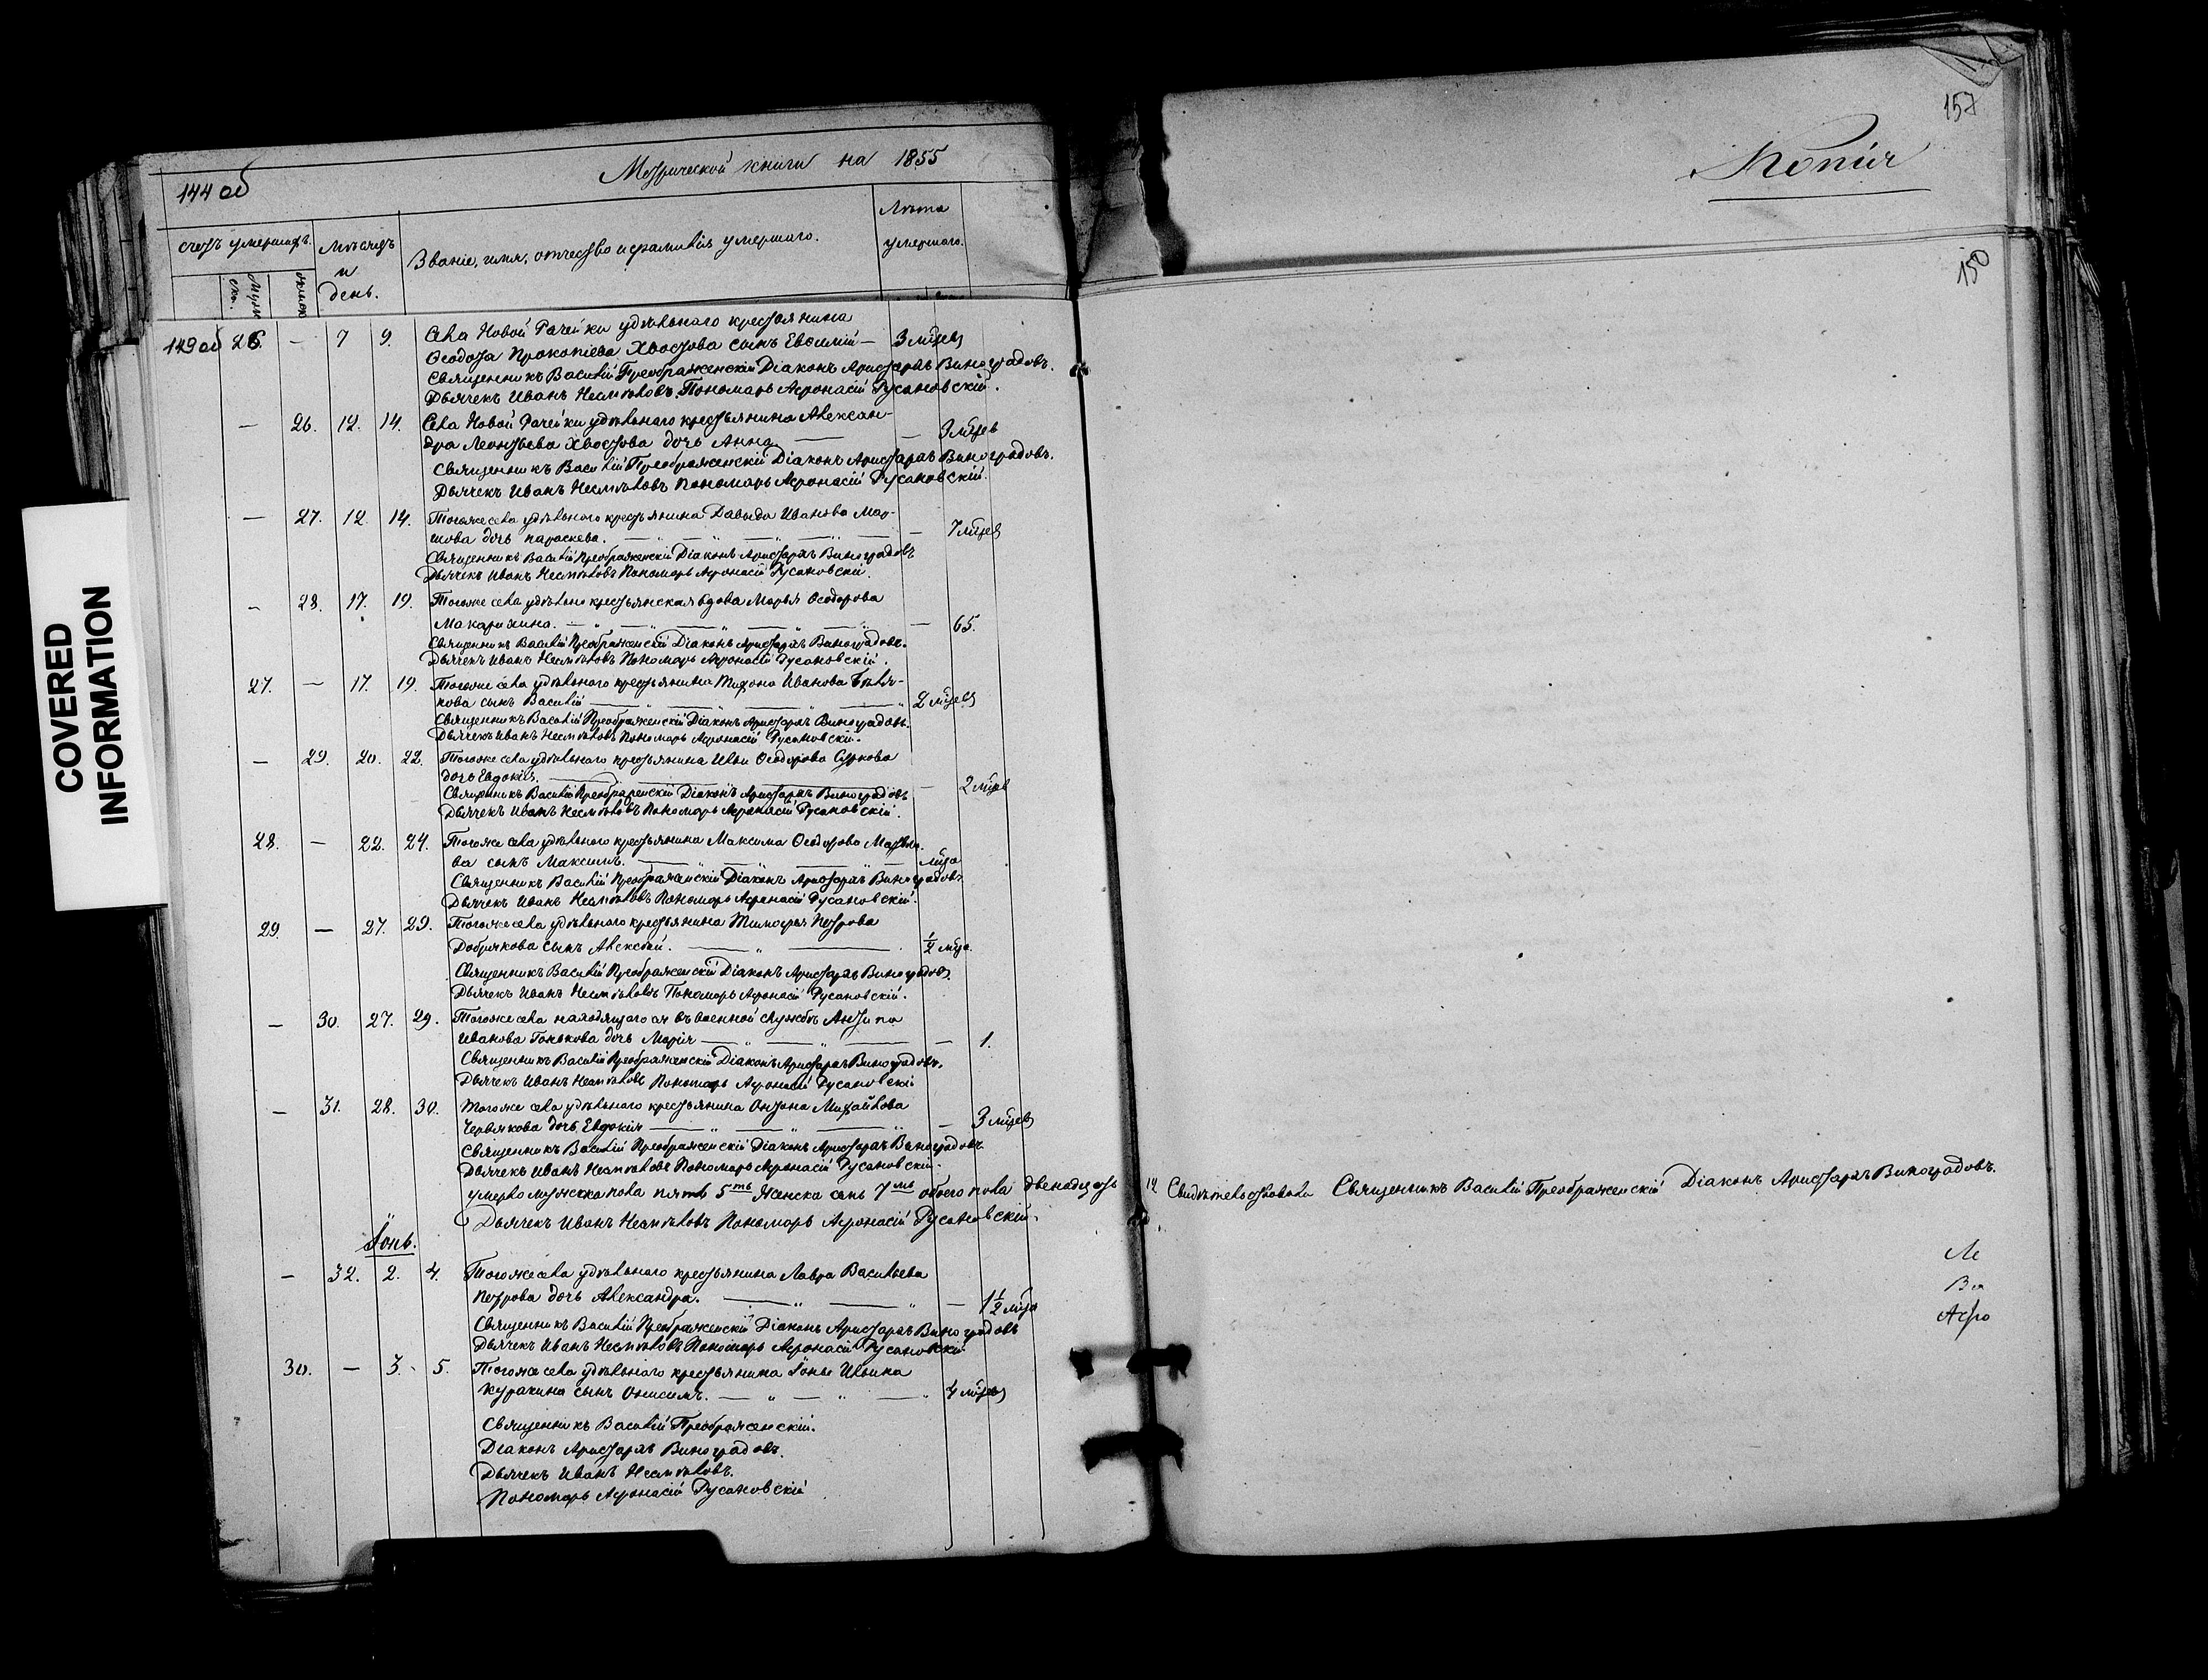 144 об
Метрической книги на 1855
счетъ умершихъ.
Мужеска.
женска
Мѣсяцъ
и
день.
Званіе, имя, отчество и фамилія умершаго.
Лѣта
умершаго.
149 об 26. — 7 9. Села Новой Рачейки удѣльнаго крестьянина
Ѳеодота Прокопіева Хвостова сынъ Евѳимій — 3 мѣсец
Священникъ Василій Преображенскій Діаконъ Аристархъ Виноградовъ.
Дьячекъ Иванъ Несмѣловъ. Пономарь Афонасій Русановскій.
— 26. 12. 14. Села Новой Рачейки удѣльнаго крестьянина Алексан-
дра Леонтьева Хвостова дочь Анна — — 3 мѣсец
Священникъ Василій Преображенскій Діаконъ Аристархъ Виноградовъ.
Дьячекъ Иванъ Несмѣловъ Пономарь Афонасій Русановскій.
— 27. 12. 14. Тогоже села удѣльнаго крестьянина Давыда Иванова Мар-
шова дочь параскева. — " — " — " — — 7 мѣсец
Священникъ Василій Преображенскій Діаконъ Аристархъ Виноградовъ
Дьячекъ Иванъ Несмѣловъ Пономарь Афонасій Русановскій.
— 28. 17. 19. Тогоже села удѣльно крестьянская вдова Марья Ѳеодорова
Макарихина. — " — " — " — — 65.
Священникъ Василій Преображенскій Діаконъ Аристархъ Виноградовъ.
Дьячекъ Иванъ Несмѣловъ Пономарь Афонасій Русановскій.
27. — 17. 19. Тогоже села удѣльнаго крестьянина Тихона Иванова Бѣля-
кова сынъ Василій — " — " — " 2 мѣсец
Священникъ Василій Преображенскій Діаконъ Аристархъ Виноградовъ.
Дьячекъ Иванъ Несмѣловъ Пономарь Афонасій Русановскій.
— 29. 20. 22. Тогоже села удѣльнаго крестьянина Ильи Ѳеодорова Суркова
дочь Евдокія. — — — 2 мѣсец
Священникъ Василій Преображенскій Діаконъ Аристархъ Виноградовъ
Дьячекъ Иванъ Несмѣловъ Пономарь Афонасій Русановскій.
28. — 22. 24. Тогоже села удѣльнаго крестьянина Максима Ѳеодорова
ва сынъ Максимъ. — " — " — " — мѣсца
Священникъ Василій Преображенскій Діаконъ Аристархъ Виноградовъ
Дьячекъ Иванъ Несмѣловъ Пономарь Афонасій Русановскій.
29. — 27. 29. Тогоже села удѣльнаго крестьянина Тимофея Петрова
Добрякова сынъ Алексѣй. — " — ½ мѣсца.
Священникъ Василій Преображенскій Діаконъ Аристархъ Виноградовъ.
Дьячекъ Иванъ Несмѣловъ Пономарь Афонасій Русановскій.
— 30. 27. 29. Тогоже села находящагося въ военной службѣ Антипа
Иванова дочь Марія — " — " — — 1.
Священникъ Василій Преображенскій Діаконъ Аристархъ Виноградовъ.
Дьячекъ Иванъ Несмѣловъ Пономарь Афонасій Русановскій
— 31. 28. 30. Тогоже села удѣльнаго крестьянина Онтона Михайлова
Червякова дочь Евдокія — " — " — " — 3 мѣсец
Священникъ Василій Преображенскій Діаконъ Аристархъ Виноградовъ
Дьячекъ Иванъ Несмѣловъ Пономарь Афонасій Русановскій.
умерло мужска пола пять 5ть Женска семь 7мь обоего пола двенадцать 12 Свидѣтельствовали Священникъ Василій Преображенскій Діаконъ Аристархъ Виноградовъ.
Дьячекъ Иванъ Несмѣловъ Пономарь Афонасій Русановскій.
Іюнь.
— 32. 2. 4. Тогоже села удѣльнаго крестьянина Лавра Васильева
Петрова дочь Александра. — " — " — 1½ мѣсца
Священникъ Василій Преображенскій Діаконъ Аристархъ Виноградовъ
Дьячекъ Иванъ Несмѣловъ Пономарь Афонасій Русановскій
30. — 3. 5. Тогоже села удѣльнаго крестьянина Іоны Ильина
Куракина сынъ Онисимъ. — " — " — " 4 мѣсец
Священникъ Василій Преображенскій.
Діаконъ Аристархъ Виноградовъ.
Дьячекъ Иванъ Несмѣловъ.
Пономарь Афонасій Русановскій
157
Копія
150
Ле
Ва
Афо
COVERED
INFORMATION